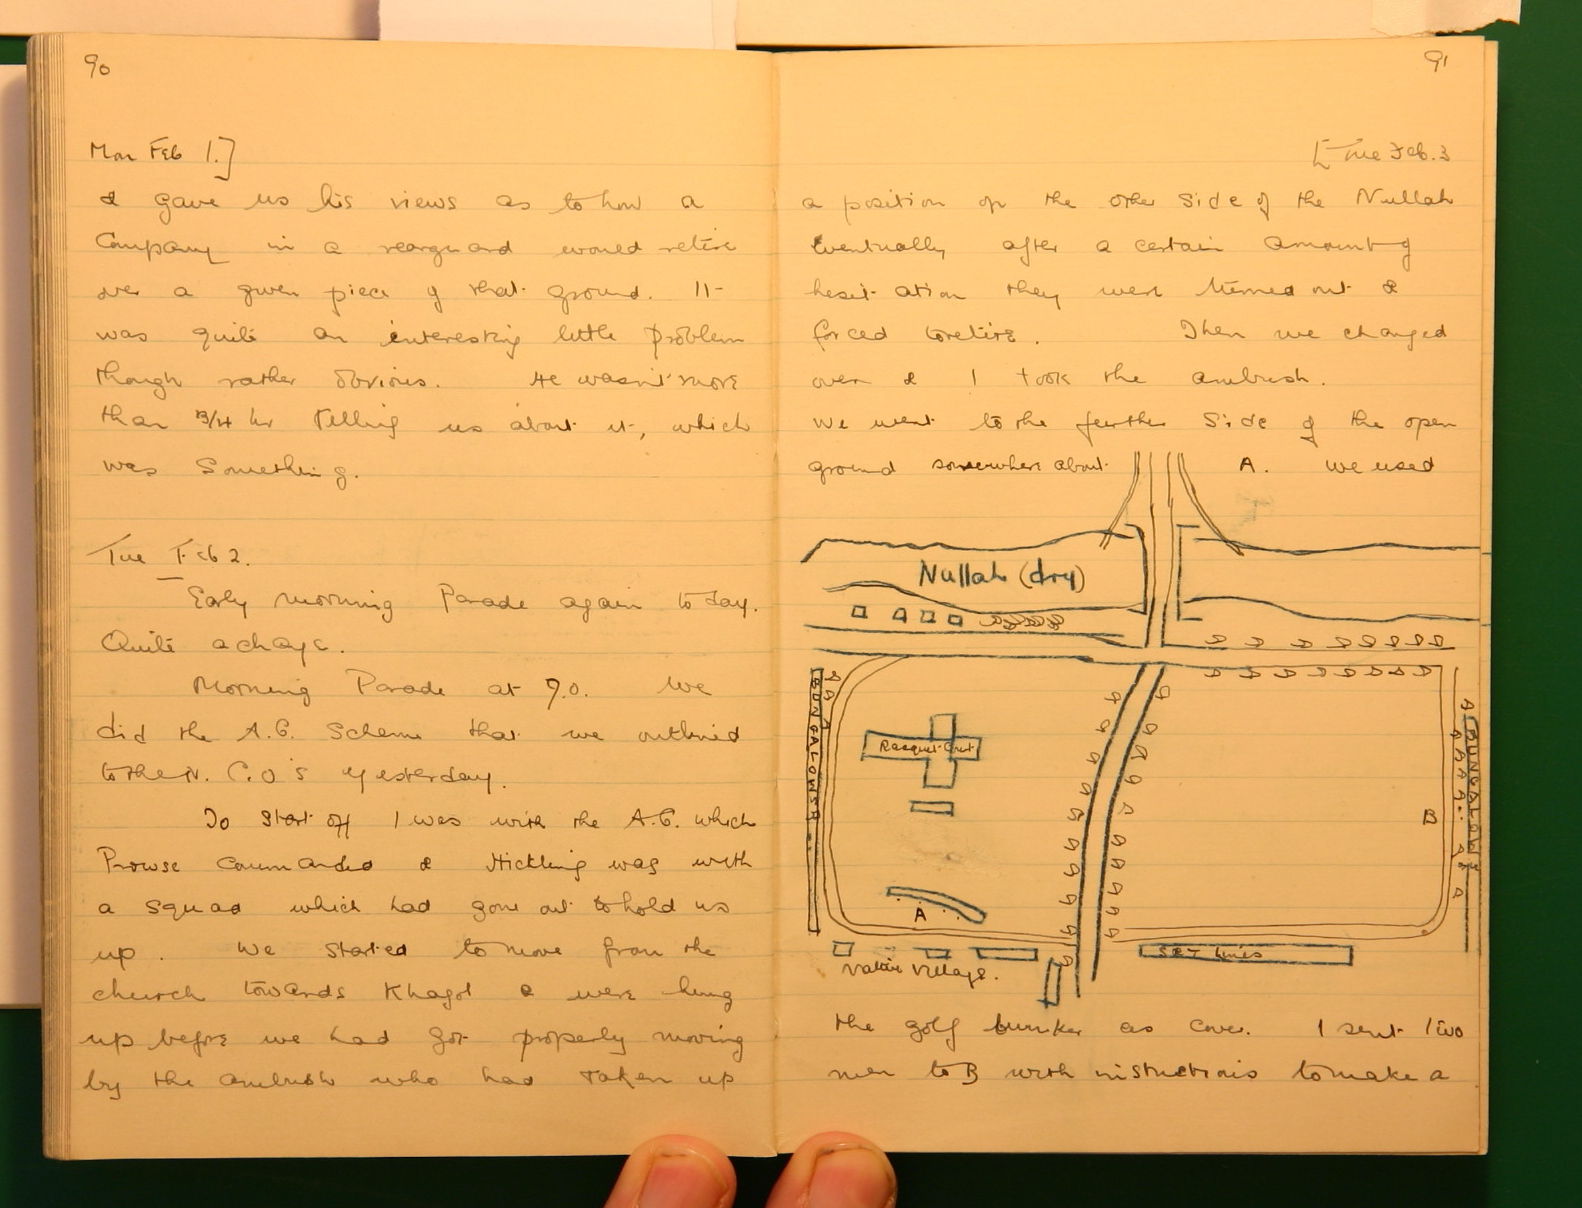 90
Mon Feb 1.]
& gave us his views as to how a
Company in a rearguard would retire
over a given piece of that ground. It
was quite an interesting little problem
though rather obvious. He wasn't more
than 3/4 hr telling us about it, which
was something.
Tue Feb 2.
Early morning Parade again today.
Quite a change.
Morning Parade at 9.0. We
did the A.G. Scheme that we outlined
to the N.C.O's yesterday.
To start off I was with the A.G. which
Prowse commanded & Hickling was with
a squad which had gone out to hold us
up. We started to move from the
church towards Khagol & were hung
up before we had got properly moving
by the ambush who had taken up
91
[Tue Feb. 3
a position on the other side of the Nullah
Eventually after a certain amount of
hesitation they were turned out &
forced to retire. Then we changed
over & I took the ambush.
We went to the further side of the open
ground somewhere about A. We used
Nullah (dry)
BUNGALOWS
Racquet Court
BUNGALOWS
B
A
Native Village.
S&T Lines
the golf bunker as cover. I sent two
men to B with instructions to make a